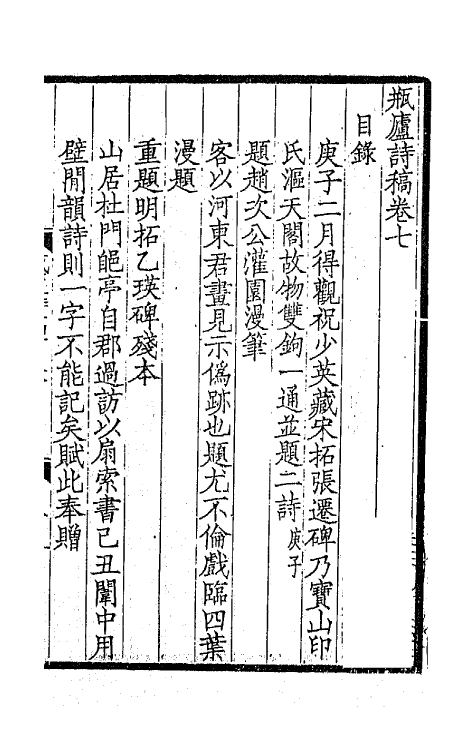 瓶廬詩稿卷七
目錄
庚子二月得觀祝少英藏宋拓張遷碑乃寶山印
氏漚天閣故物雙鉤一通並題二詩庚子
題趙次公灌園漫筆
客以河東君畫見示僞跡也題尤不倫戲臨四葉
漫題
重題明拓乙瑛碑殘本
山居杜門皅亭自郡過訪以扇索書己丑闈中用
壁閒韻詩則一字不能記矣賦此奉贈